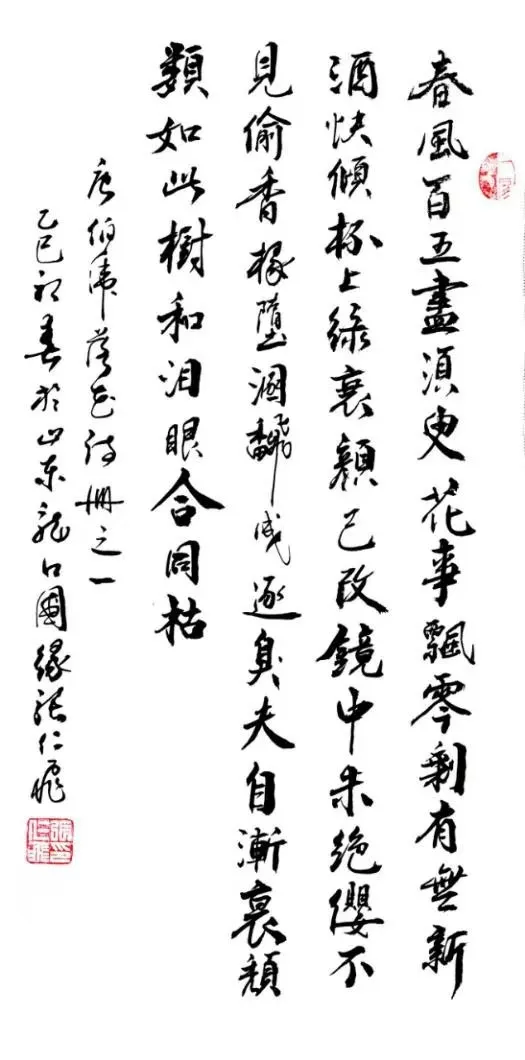 春風百五盡須臾花事飄零剩有無新
酒快傾杯上綠衰顏已改鏡中朱絕纓不
見偷香掾墮溷飜成逐臭夫自漸衰頹
類如此樹和泪眼合同枯
唐伯虎落花詩冊之一
乙巳初春於山東龍口緣張仁飛